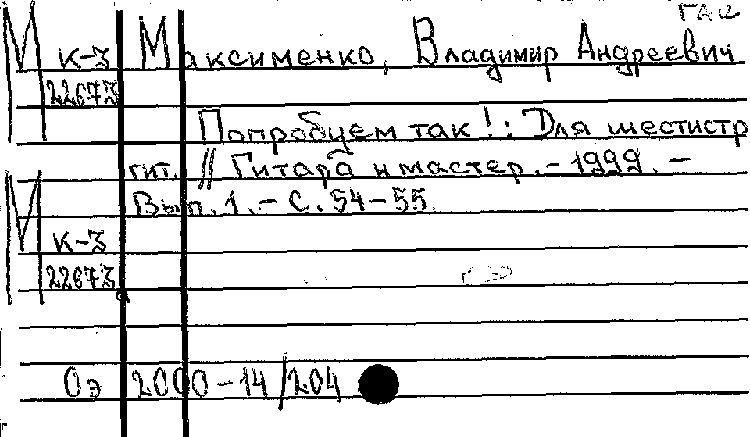 М К-3 Максименко, Владимир Андреевич
22673
Попробуем так!: Для шестистр
гит. // Гитара и мастер. - 1999. -
Вып. 1. - С. 54-55
М К-3
22673
Оэ 2000-14/204